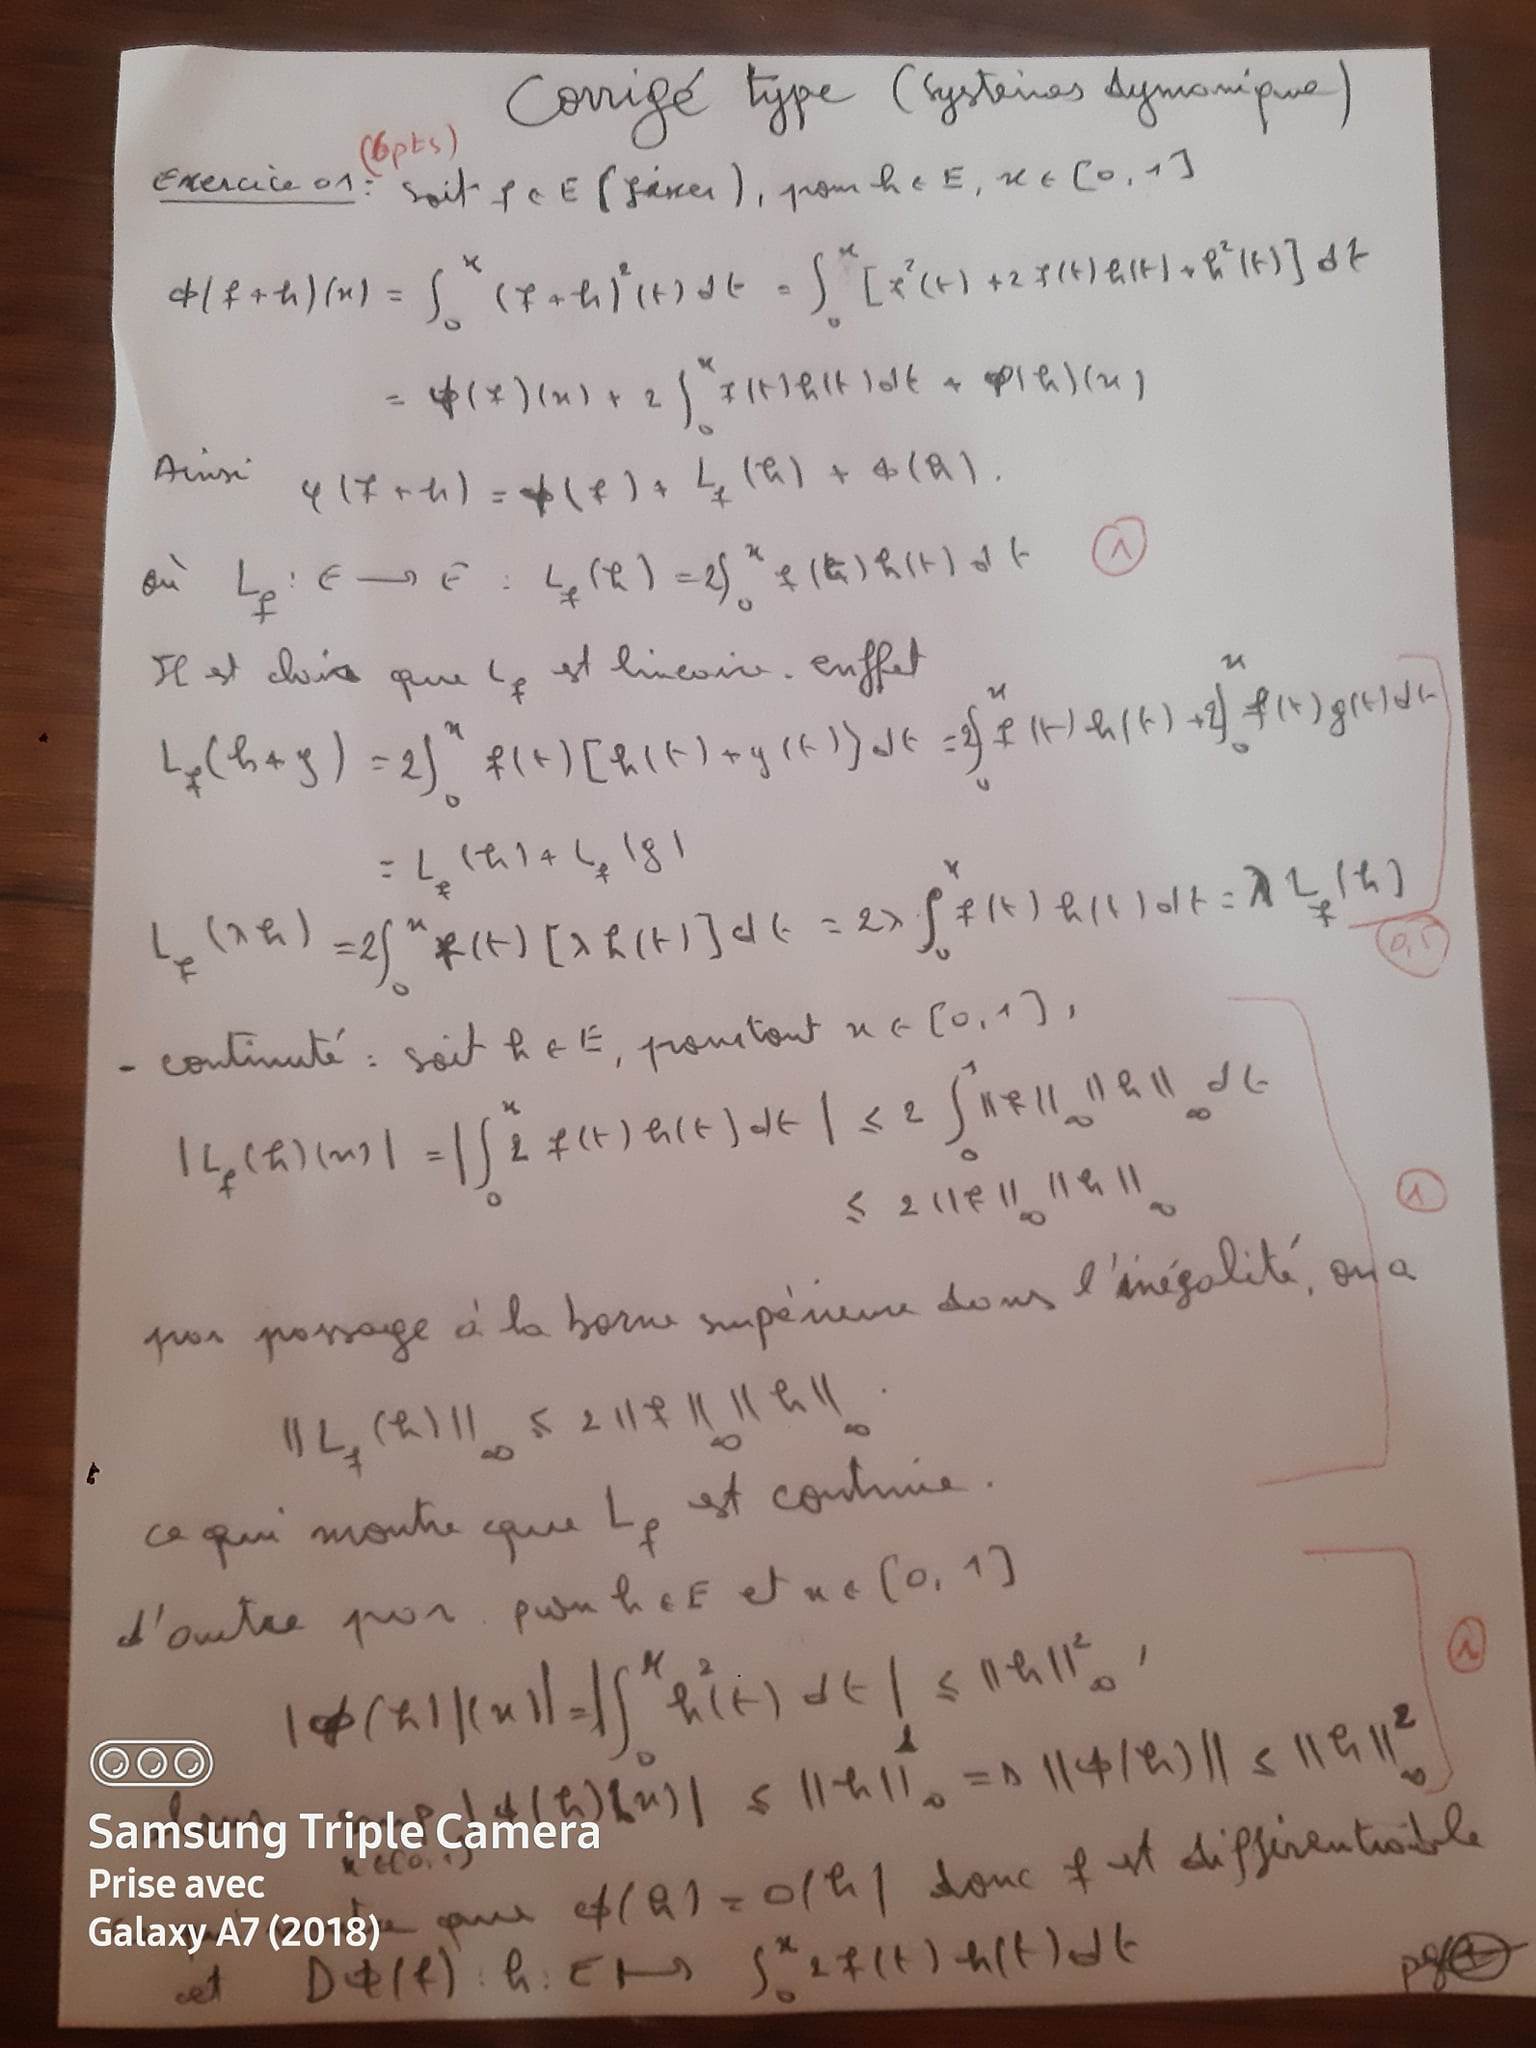 Corrigé type (Systèmes dynamique)
(6pts)
Exercice 01 : soit f ∈ E (fixer), pour h ∈ E, x ∈ [0, 1]
ϕ(f+h)(x) = ∫₀ˣ (f+h)²(t) dt = ∫₀ˣ [f²(t) + 2 f(t) h(t) + h²(t)] dt
= ϕ(f)(x) + 2 ∫₀ˣ f(t) h(t) dt + ϕ(h)(x)
Ainsi φ(f+h) = ϕ(f) + L_f(h) + ϕ(h).
où L_f : E → E : L_f(h) = 2∫₀ˣ f(t) h(t) dt ①
Il est clair que L_f est lineaire. enffet
L_f(h+g) = 2∫₀ˣ f(t) [h(t) + g(t)] dt = 2∫₀ˣ f(t) h(t) + 2∫₀ˣ f(t) g(t) dt
= L_f(h) + L_f(g)
L_f(λh) = 2∫₀ˣ f(t) [λ h(t)] dt = 2λ ∫₀ˣ f(t) h(t) dt = λ L_f(h)
0,5
- continuté : soit h ∈ E, pour tout x ∈ [0, 1],
|L_f(h)(x)| = |∫₀ˣ 2 f(t) h(t) dt| ≤ 2 ∫₀¹ ||f||_∞ ||h||_∞ dt
≤ 2 ||f||_∞ ||h||_∞ ①
par passage à la borne supérieure dans l'inégalité, on a
||L_f(h)||_∞ ≤ 2 ||f||_∞ ||h||_∞.
ce qui montre que L_f est continue.
d'autre par. pour h ∈ E et x ∈ [0, 1]
|ϕ(h)(x)| = |∫₀ˣ h²(t) dt| ≤ ||h||²_∞,
①
sup |ϕ(h)(x)| ≤ ||h||²_∞ => ||ϕ(h)|| ≤ ||h||²_∞
x∈[0,1]
que ϕ(h) = o(h) donc f est différentiable
et Dϕ(f) : h : E ↦ ∫₀ˣ 2 f(t) h(t) dt
pg 1
Samsung Triple Camera
Prise avec
Galaxy A7 (2018)